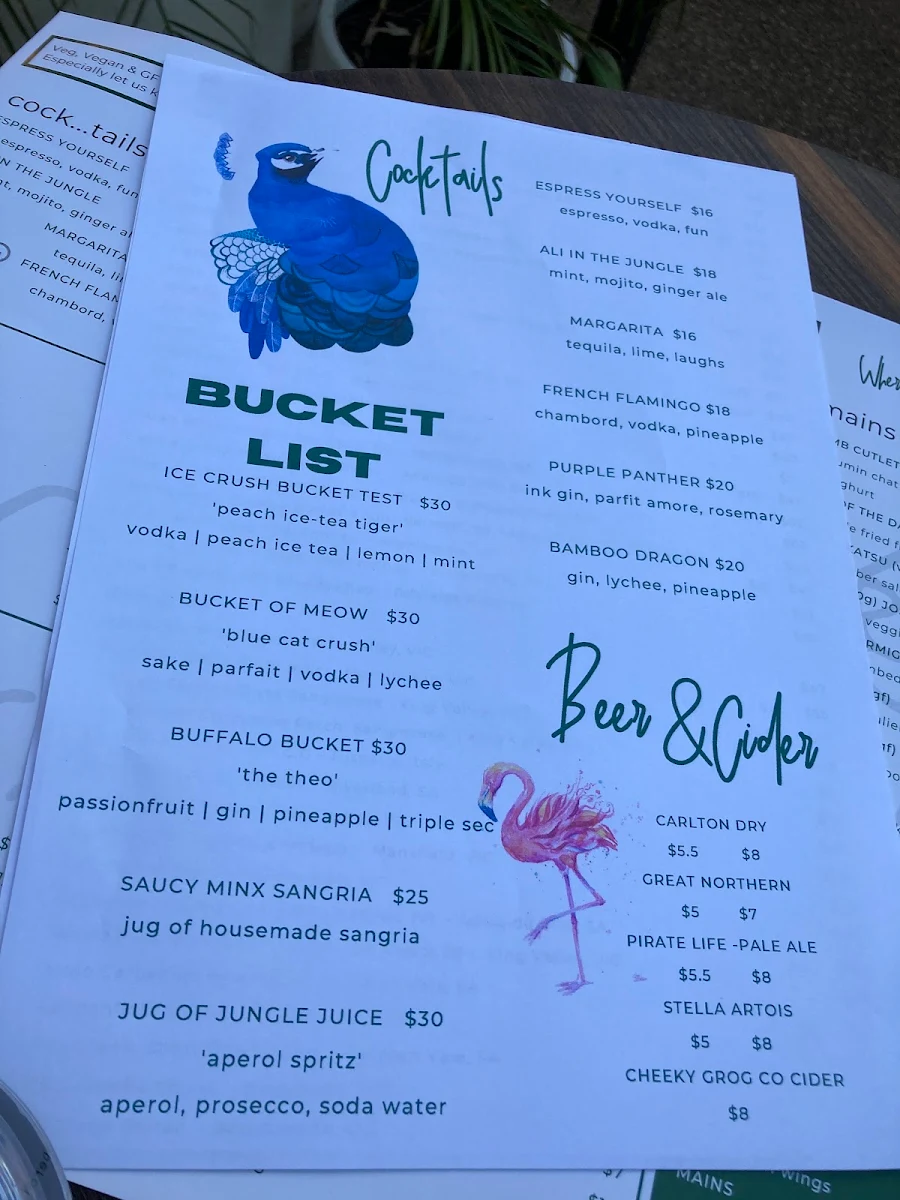 Veg, Vegan & GF
Especially let us k
cock...tails
ESPRESS YOURSELF
espresso, vodka, fun
IN THE JUNGLE
mojito, ginger
MARGARITA
tequila,
FRENCH
chambord,
Cocktails
ESPRESS YOURSELF $16
espresso, vodka, fun
ALI IN THE JUNGLE $18
mint, mojito, ginger ale
MARGARITA $16
tequila, lime, laughs
FRENCH FLAMINGO $18
chambord, vodka, pineapple
PURPLE PANTHER $20
ink gin, parfit amore, rosemary
BAMBOO DRAGON $20
gin, lychee, pineapple
BUCKET
LIST
ICE CRUSH BUCKET TEST $30
'peach ice-tea tiger'
vodka | peach ice tea | lemon | mint
BUCKET OF MEOW $30
'blue cat crush'
sake | parfait | vodka | lychee
BUFFALO BUCKET $30
'the theo'
passionfruit | gin | pineapple | triple sec
SAUCY MINX SANGRIA $25
jug of housemade sangria
JUG OF JUNGLE JUICE $30
'aperol spritz'
aperol, prosecco, soda water
Beer & Cider
CARLTON DRY
$5.5 $8
GREAT NORTHERN
$5 $7
PIRATE LIFE -PALE ALE
$5.5 $8
STELLA ARTOIS
$5 $8
CHEEKY GROG CO CIDER
$8
mains
CUTLET
fried
MAINS
wings